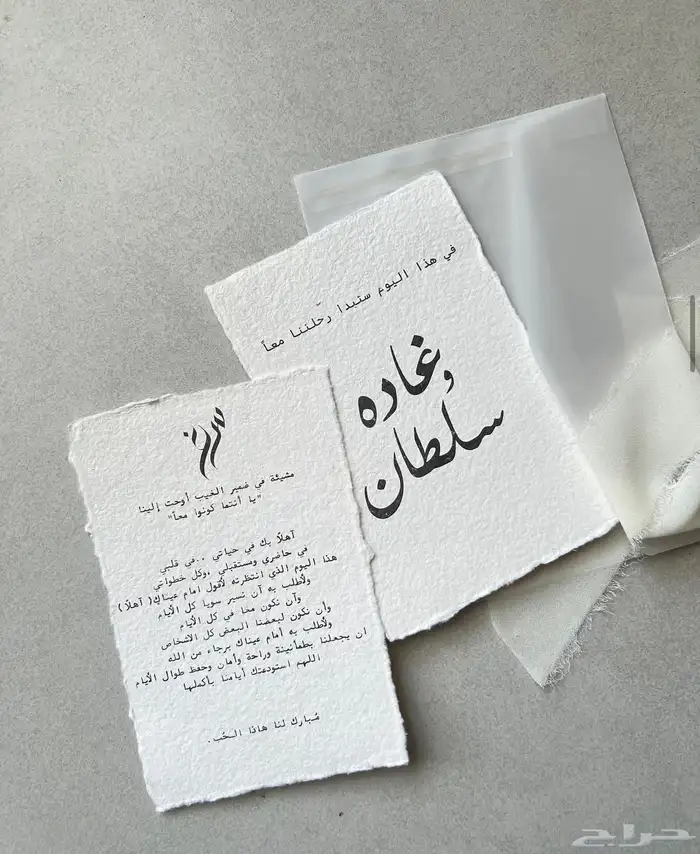 في هذا اليوم ستبدا رحلتنا معاً
غاده
و
سلطان
مشيئة في ضمير الغيب أوحت إلينا
"يا أنتما كونوا معاً"
أهلاً بك في حياتي ..في قلبي
في حاضري ومستقبلي ,وكل خطواتي
هذا اليوم الذي انتظرته لأقول امام عيناك( أهلاً)
ولأطلب به أن نسير سويا كل الأيام
وأن نكون معا في كل الأيام
وأن نكون لبعضنا البعض كل الاشخاص
ولأطلب به أمام عيناك برجاء من الله
ان يجعلنا بطمأنينة وراحة وأمان وحفظ طوال الأيام
اللهم استودعتك أيامنا بأكملها
مُبارك لنا هاذا الـحُب.
حراج